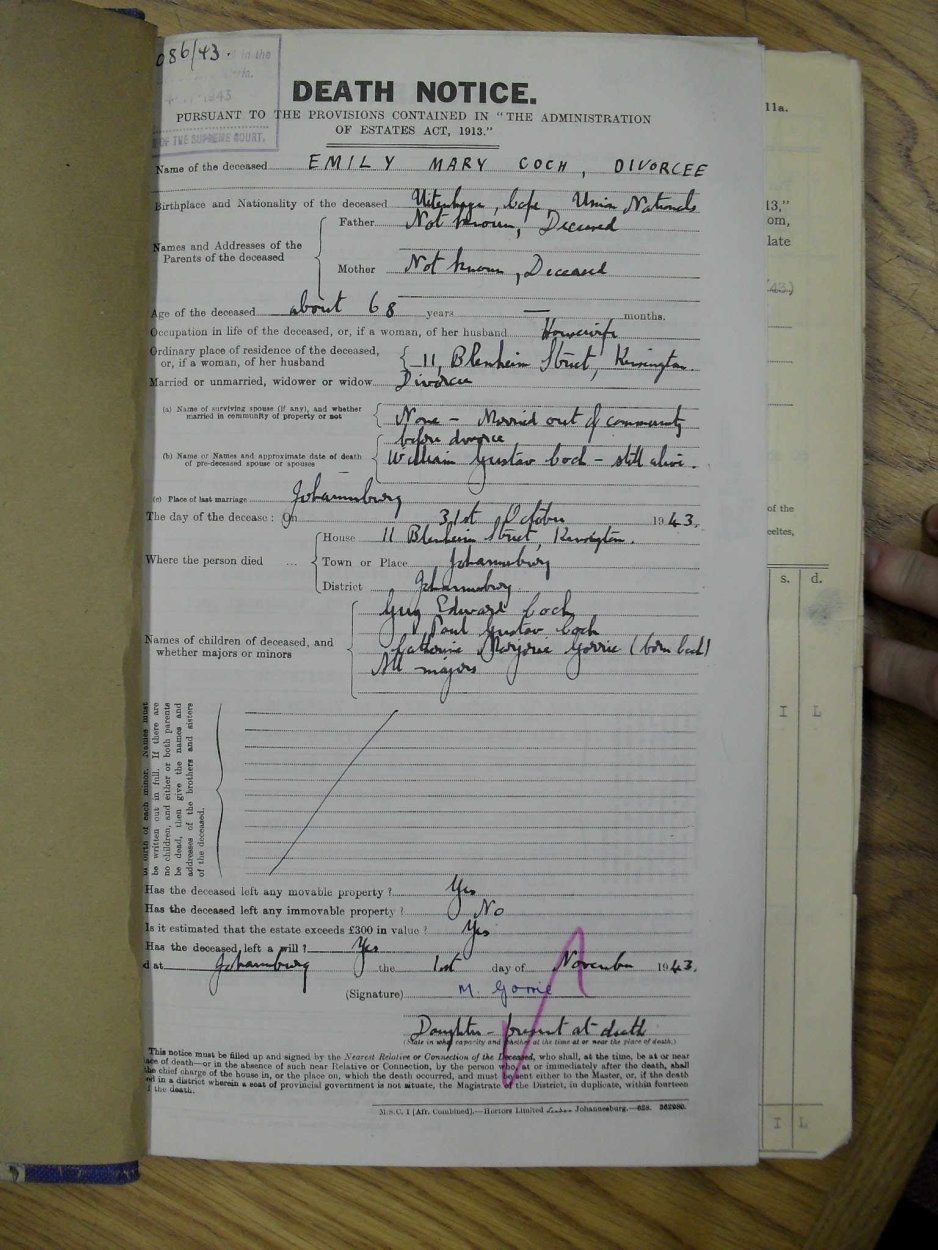 086/43.
in the
1943
OF THE SUPREME COURT.
DEATH NOTICE.
PURSUANT TO THE PROVISIONS CONTAINED IN "THE ADMINISTRATION
OF ESTATES ACT, 1913."
Name of the deceased EMILY MARY COCH, DIVORCEE
Birthplace and Nationality of the deceased Uitenhage, Cape, Union Nationals
Names and Addresses of the
Parents of the deceased
Father Not known, Deceased
Mother Not known, Deceased
Age of the deceased about 68 years — months.
Occupation in life of the deceased, or, if a woman, of her husband Housewife
Ordinary place of residence of the deceased,
or, if a woman, of her husband
11, Blenheim Street, Kensington.
Married or unmarried, widower or widow Divorcee
(a) Name of surviving spouse (if any), and whether
married in community of property or not
None - Married out of community
before divorce
(b) Name or Names and approximate date of death
of pre-deceased spouse or spouses
William Gustav Coch - still alive.
(c) Place of last marriage Johannesburg
The day of the decease: On 31st October 1943.
Where the person died ...
House 11 Blenheim Street, Kensington.
Town or Place Johannesburg
District Johannesburg
Names of children of deceased, and
whether majors or minors
Guy Edward Coch
Paul Gustav Coch
Catherine Marjorie Gorrie (born Coch)
All majors
birth of each minor. Names must
be written out in full. If there are
no children, and either or both parents
be dead, then give the names and
addresses of the brothers and sisters
of the deceased.
Has the deceased left any movable property? Yes
Has the deceased left any immovable property? No
Is it estimated that the estate exceeds £300 in value? Yes
Has the deceased left a will? Yes
d at Johannesburg the 1st day of November 1943.
(Signature) M. Gorrie
Daughter - present at death
(State in what capacity and whether at the time at or near the place of death.)
This notice must be filled up and signed by the Nearest Relative or Connection of the Deceased, who shall, at the time, be at or near
ace of death—or in the absence of such near Relative or Connection, by the person who, at or immediately after the death, shall
the chief charge of the house in, or the place on, which the death occurred, and must be sent either to the Master, or, if the death
ed in a district wherein a seat of provincial government is not situate, the Magistrate of the District, in duplicate, within fourteen
f the death.
M.S.C. 1 (Afr. Combined).—Hortors Limited London Johannesburg.—628. 362980.
11a.
13,"
om,
late
43.)
of the
s. d.
I L
I L